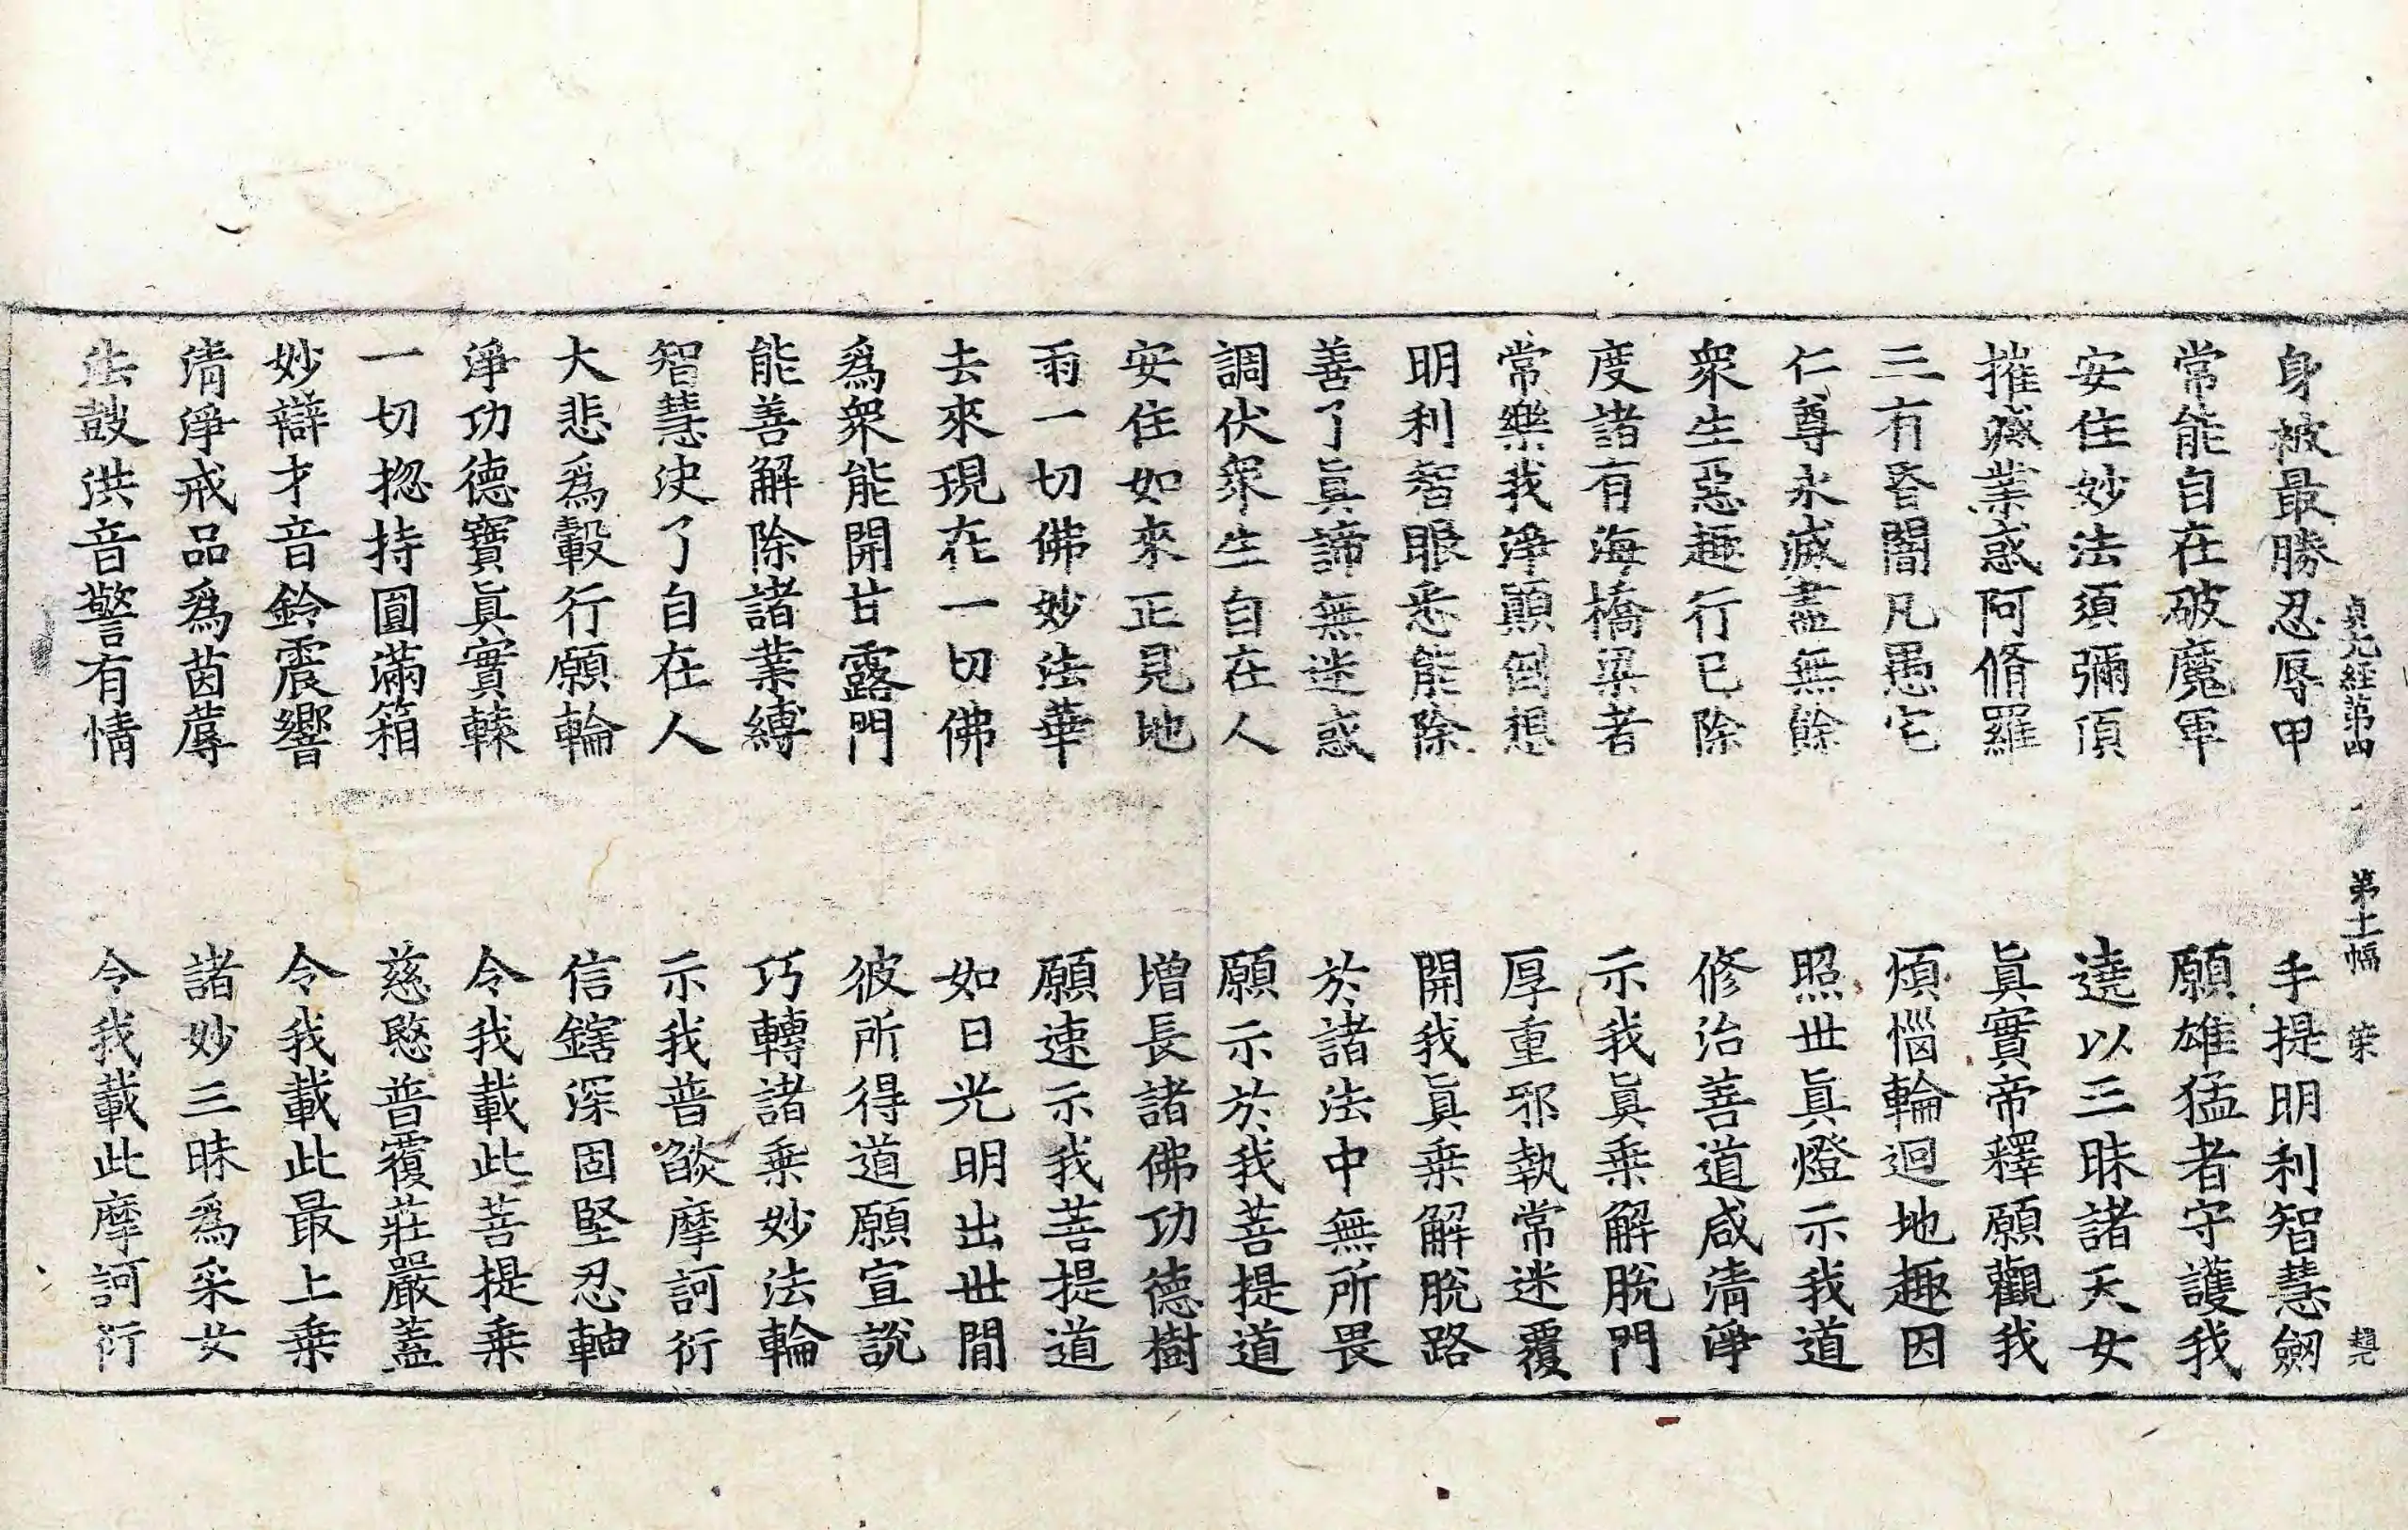 貞元經第四 第十幅 榮 趙元
身被最勝忍辱甲 手提明利智慧劔
常能自在破魔軍 願雄猛者守護我
安住妙法須彌頂 遶以三昧諸天女
摧滅業惑阿脩羅 眞實帝釋願觀我
三有昏闇凡愚宅 煩惱輪迴地趣因
仁尊永滅盡無餘 照世眞燈示我道
衆生惡趣行已除 修治善道咸清淨
度諸有海橋梁者 示我眞乗解脫門
常樂我淨顚倒想 厚重邪執常迷覆
明利智眼悉能除 開我眞乗解脫路
善了眞諦無迷惑 於諸法中無所畏
調伏衆生自在人 願示於我菩提道
安住如來正見地 増長諸佛功德樹
雨一切佛妙法華 願速示我菩提道
去來現在一切佛 如日光明出世間
爲衆能開甘露門 彼所得道願宣說
能善解除諸業縛 巧轉諸乗妙法輪
智慧決了自在人 示我普燄摩訶衍
大悲爲轂行願輪 信鎋深固堅忍軸
淨功德寶眞實𨏮 令我載此菩提乗
一切揔持圓滿箱 慈愍普覆莊嚴蓋
妙辯才音鈴震響 令我載此最上乗
清淨戒品爲茵蓐 諸妙三昧爲采女
法鼓洪音警有情 令我載此摩訶衍